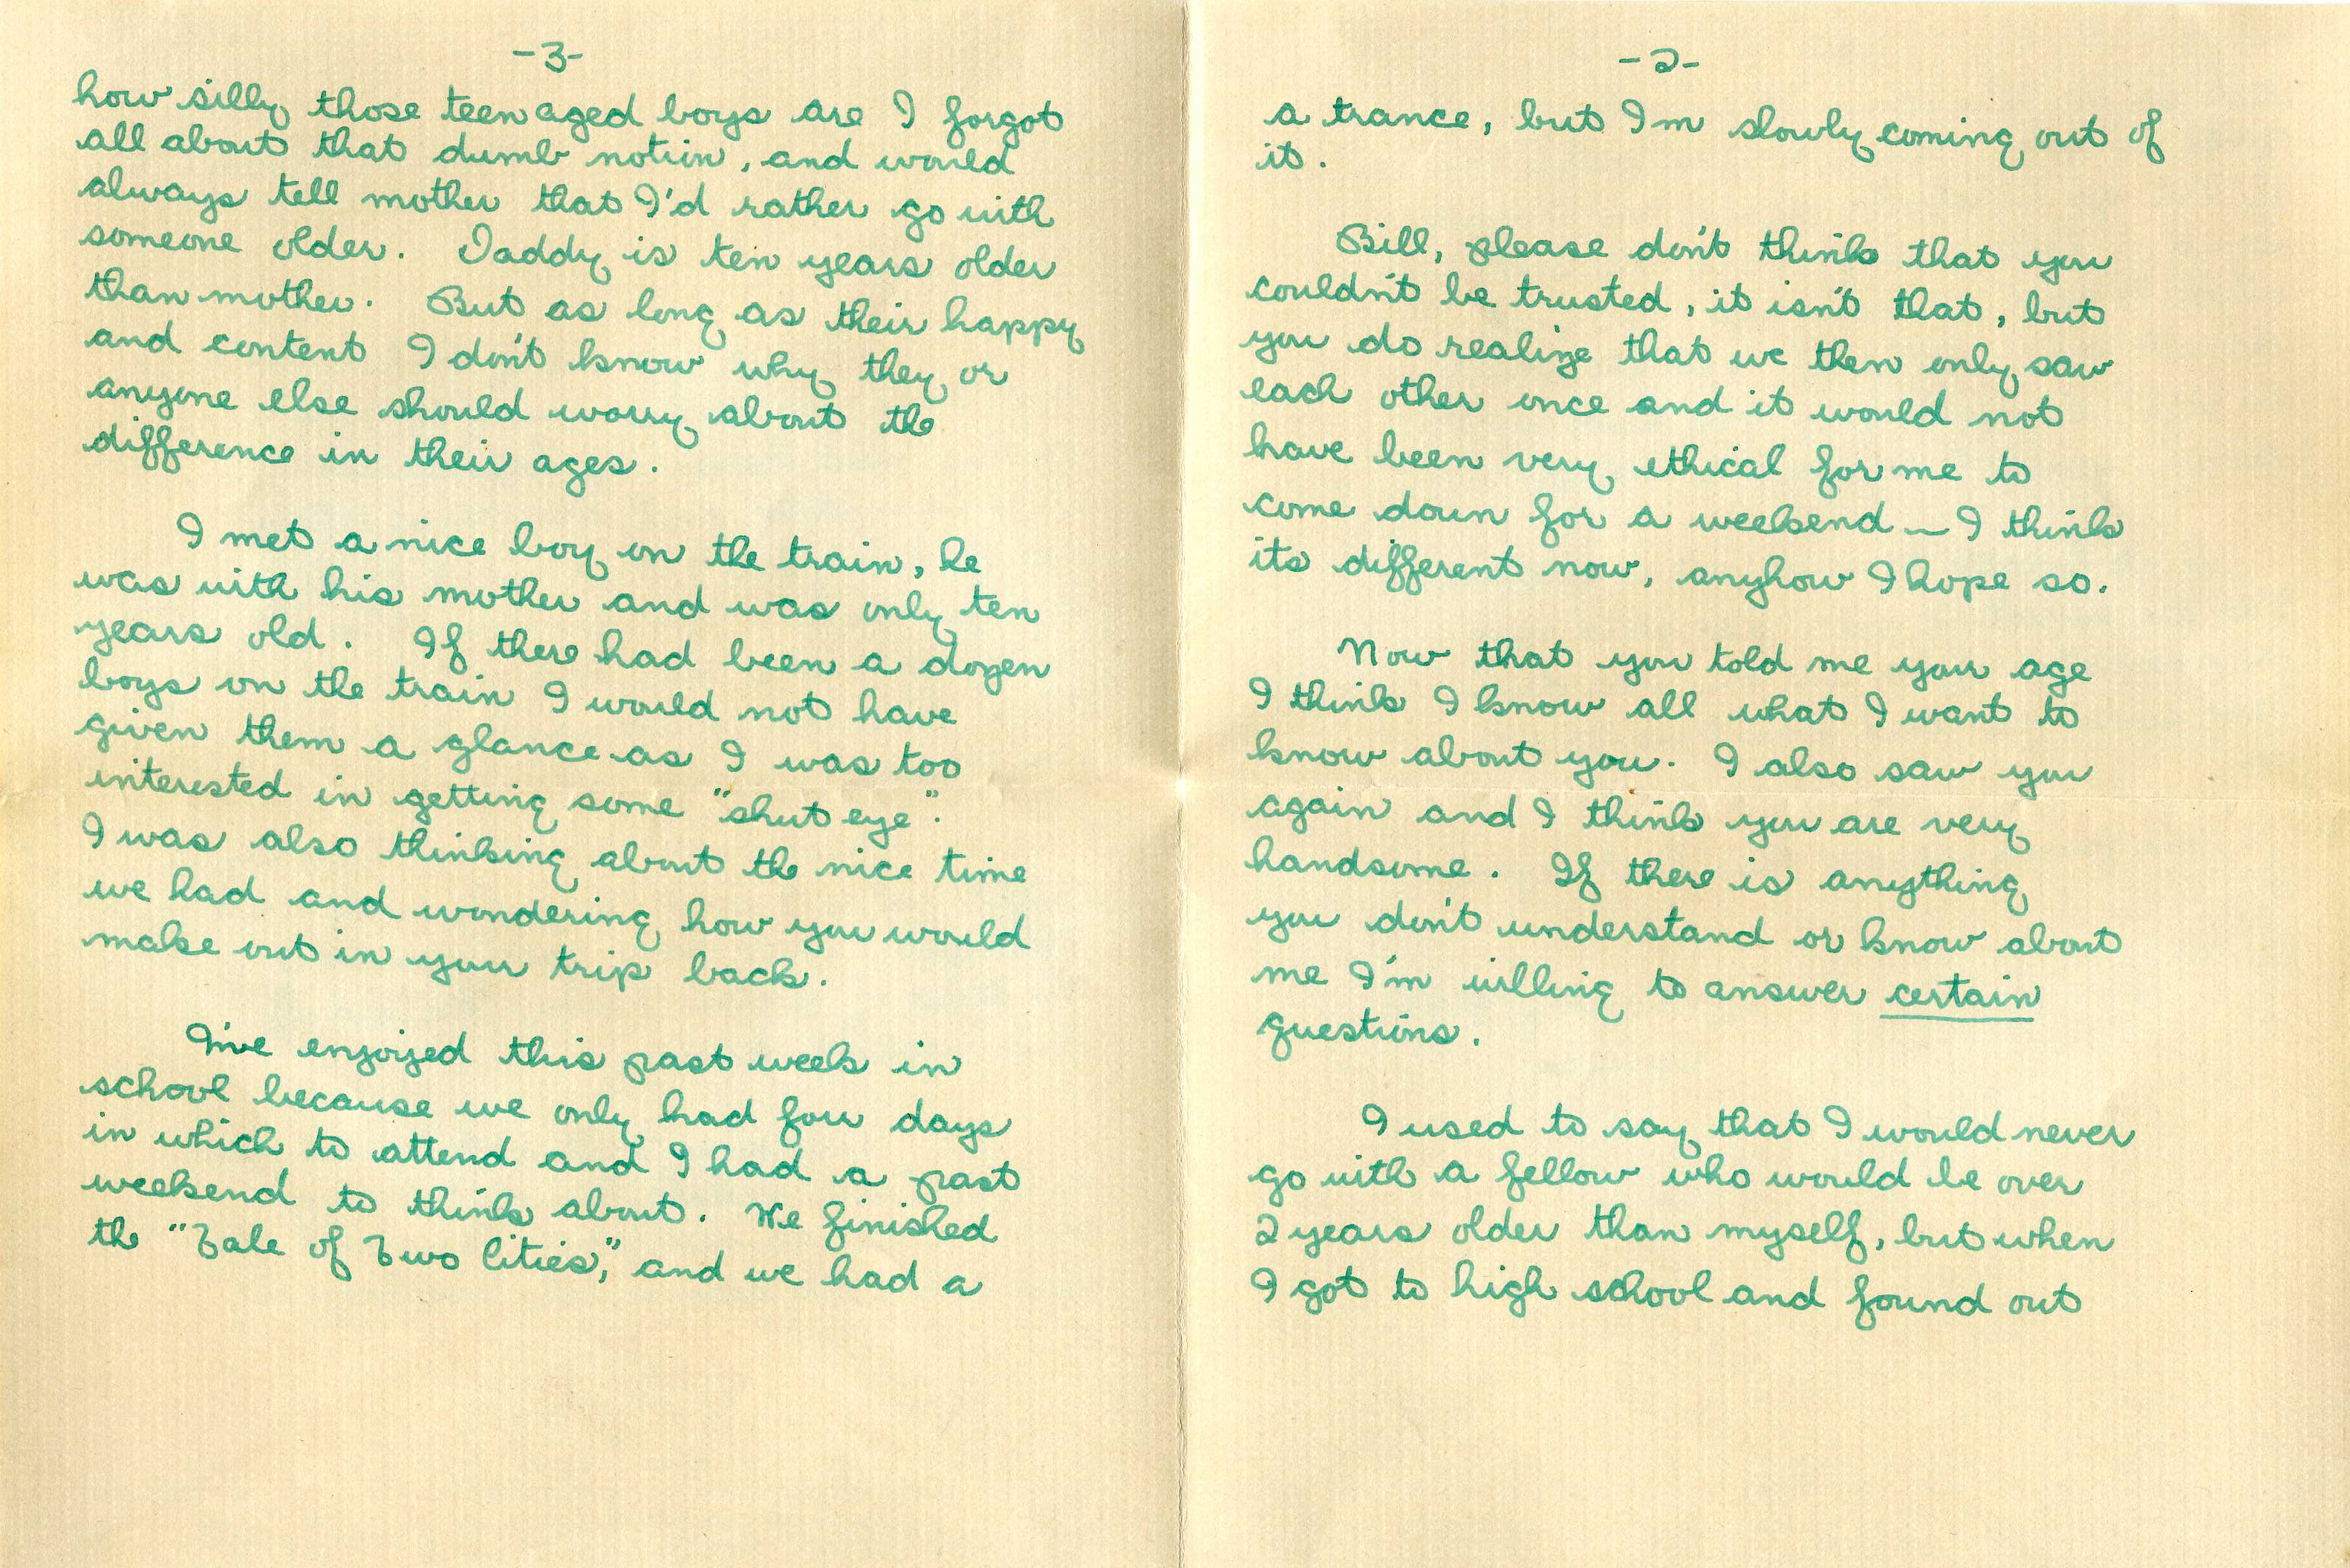 -2-
a trance, but I'm slowly coming out of
it.
Bill, please don't think that you
couldn't be trusted, it isn't that, but
you do realize that we then only saw
each other once and it would not
have been very ethical for me to
come down for a weekend — I think
its different now, anyhow I hope so.
Now that you told me your age
I think I know all what I want to
know about you. I also saw you
again and I think you are very
handsome. If there is anything
you don't understand or know about
me I'm willing to answer certain
questions.
I used to say that I would never
go with a fellow who would be over
2 years older than myself, but when
I got to high school and found out
-3-
how silly those teenaged boys are I forgot
all about that dumb notion, and would
always tell mother that I'd rather go with
someone older. Daddy is ten years older
than mother. But as long as their happy
and content I don't know why they or
anyone else should worry about the
difference in their ages.
I met a nice boy on the train, he
was with his mother and was only ten
years old. If there had been a dozen
boys on the train I would not have
given them a glance as I was too
interested in getting some "shut eye".
I was also thinking about the nice time
we had and wondering how you would
make out in your trip back.
I've enjoyed this past week in
school because we only had four days
in which to attend and I had a past
weekend to think about. We finished
the "Tale of Two Cities," and we had a